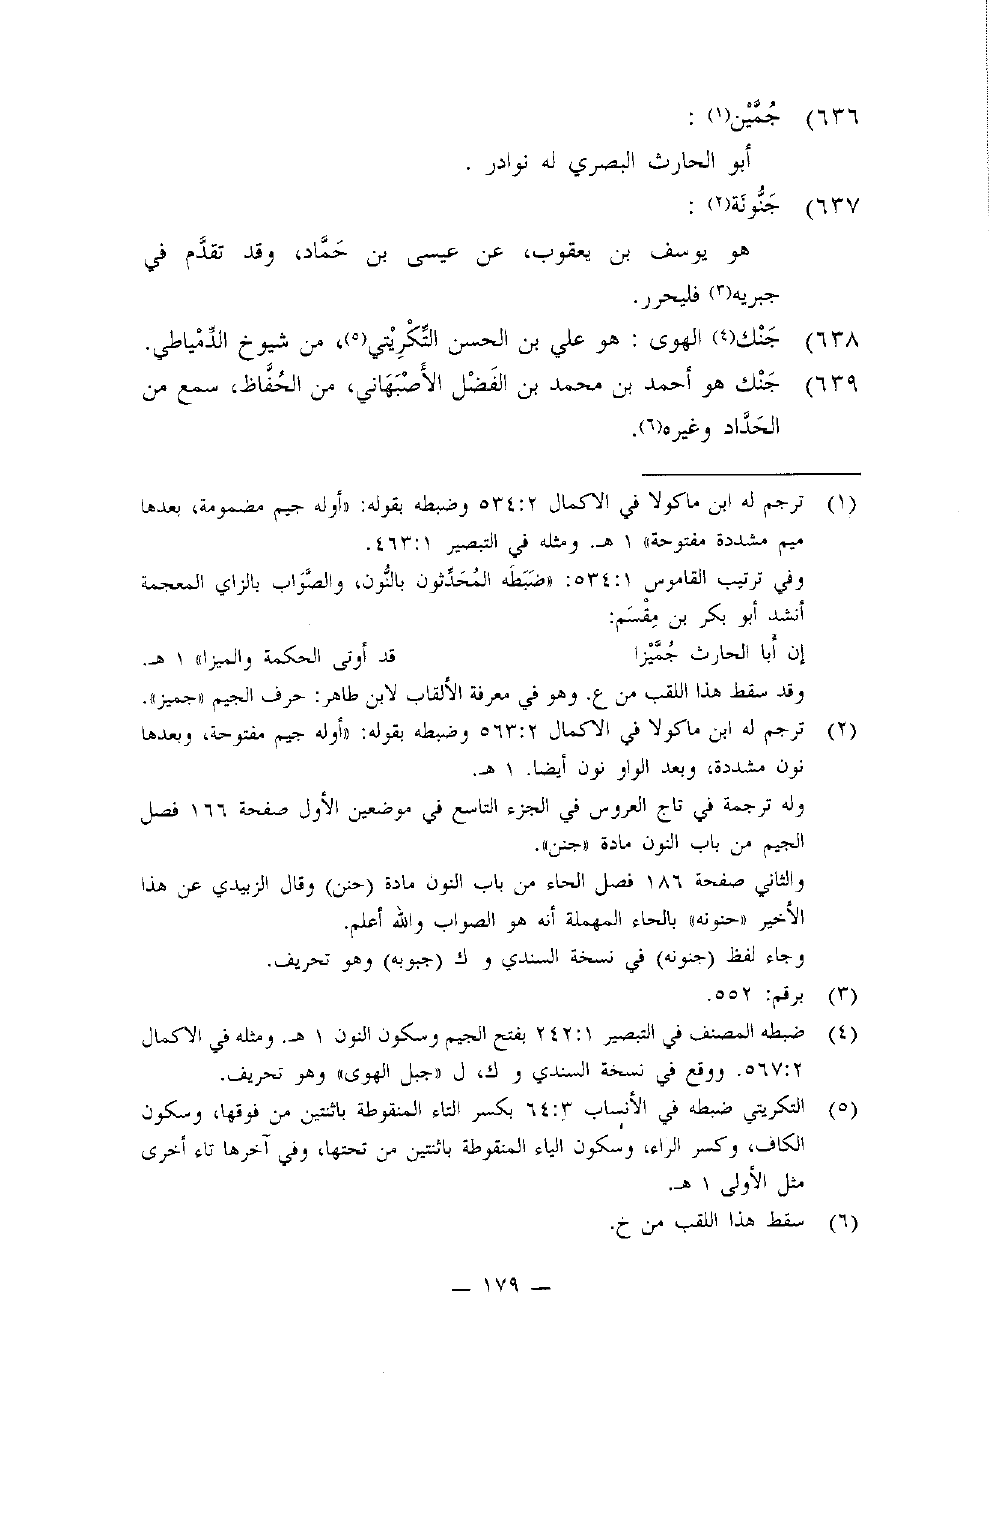 ٦٣٦) جُمَّيْن(١) :
أبو الحارث البصري له نوادر .
٦٣٧) جَنُّونَة(٢) :
هو يوسف بن يعقوب، عن عيسى بن حَمَّاد، وقد تقدَّم في
جبريه(٣) فليحرر.
٦٣٨) جَنْك(٤) الهوى : هو علي بن الحسن التِّكْرِيْتي(٥)، من شيوخ الدِّمْياطي.
٦٣٩) جَنْك هو أحمد بن محمد بن الفَضْل الأَصْبَهَاني، من الحُفَّاظ، سمع من
الحَدَّاد وغيره(٦).
(١) ترجم له ابن ماكولا في الاكمال ٥٣٤:٢ وضبطه بقوله: «أوله جيم مضمومة، بعدها
ميم مشددة مفتوحة» ١ هـ. ومثله في التبصير ٤٦٣:١.
وفي ترتيب القاموس ٥٣٤:١: «ضَبَطَه المُحَدِّثون بالنُّون، والصَّوَاب بالزاي المعجمة
أنشد أبو بكر بن مِقْسَم:
إن أبا الحارث جُمَّيْزا قد أوتى الحكمة والميزا» ١ هـ.
وقد سقط هذا اللقب من ع. وهو في معرفة الألقاب لابن طاهر: حرف الجيم «جميز».
(٢) ترجم له ابن ماكولا في الاكمال ٥٦٣:٢ وضبطه بقوله: «أوله جيم مفتوحة، وبعدها
نون مشددة، وبعد الواو نون أيضا. ١ هـ.
وله ترجمة في تاج العروس في الجزء التاسع في موضعين الأول صفحة ١٦٦ فصل
الجيم من باب النون مادة «جنن».
والثاني صفحة ١٨٦ فصل الحاء من باب النون مادة (حنن) وقال الزبيدي عن هذا
الأخير «حنونه» بالحاء المهملة أنه هو الصواب والله أعلم.
وجاء لفظ (جنونه) في نسخة السندي و ك (جبوبه) وهو تحريف.
(٣) برقم: ٥٥٢.
(٤) ضبطه المصنف في التبصير ٢٤٢:١ بفتح الجيم وسكون النون ١ هـ. ومثله في الاكمال
٥٦٧:٢. ووقع في نسخة السندي و ك، ل «جبل الهوى» وهو تحريف.
(٥) التكريتي ضبطه في الأنساب ٦٤:٣ بكسر التاء المنقوطة باثنتين من فوقها، وسكون
الكاف، وكسر الراء، وسكون الياء المنقوطة باثنتين من تحتها، وفي آخرها تاء أخرى
مثل الأولى ١ هـ.
(٦) سقط هذا اللقب من خ.
— ١٧٩ —